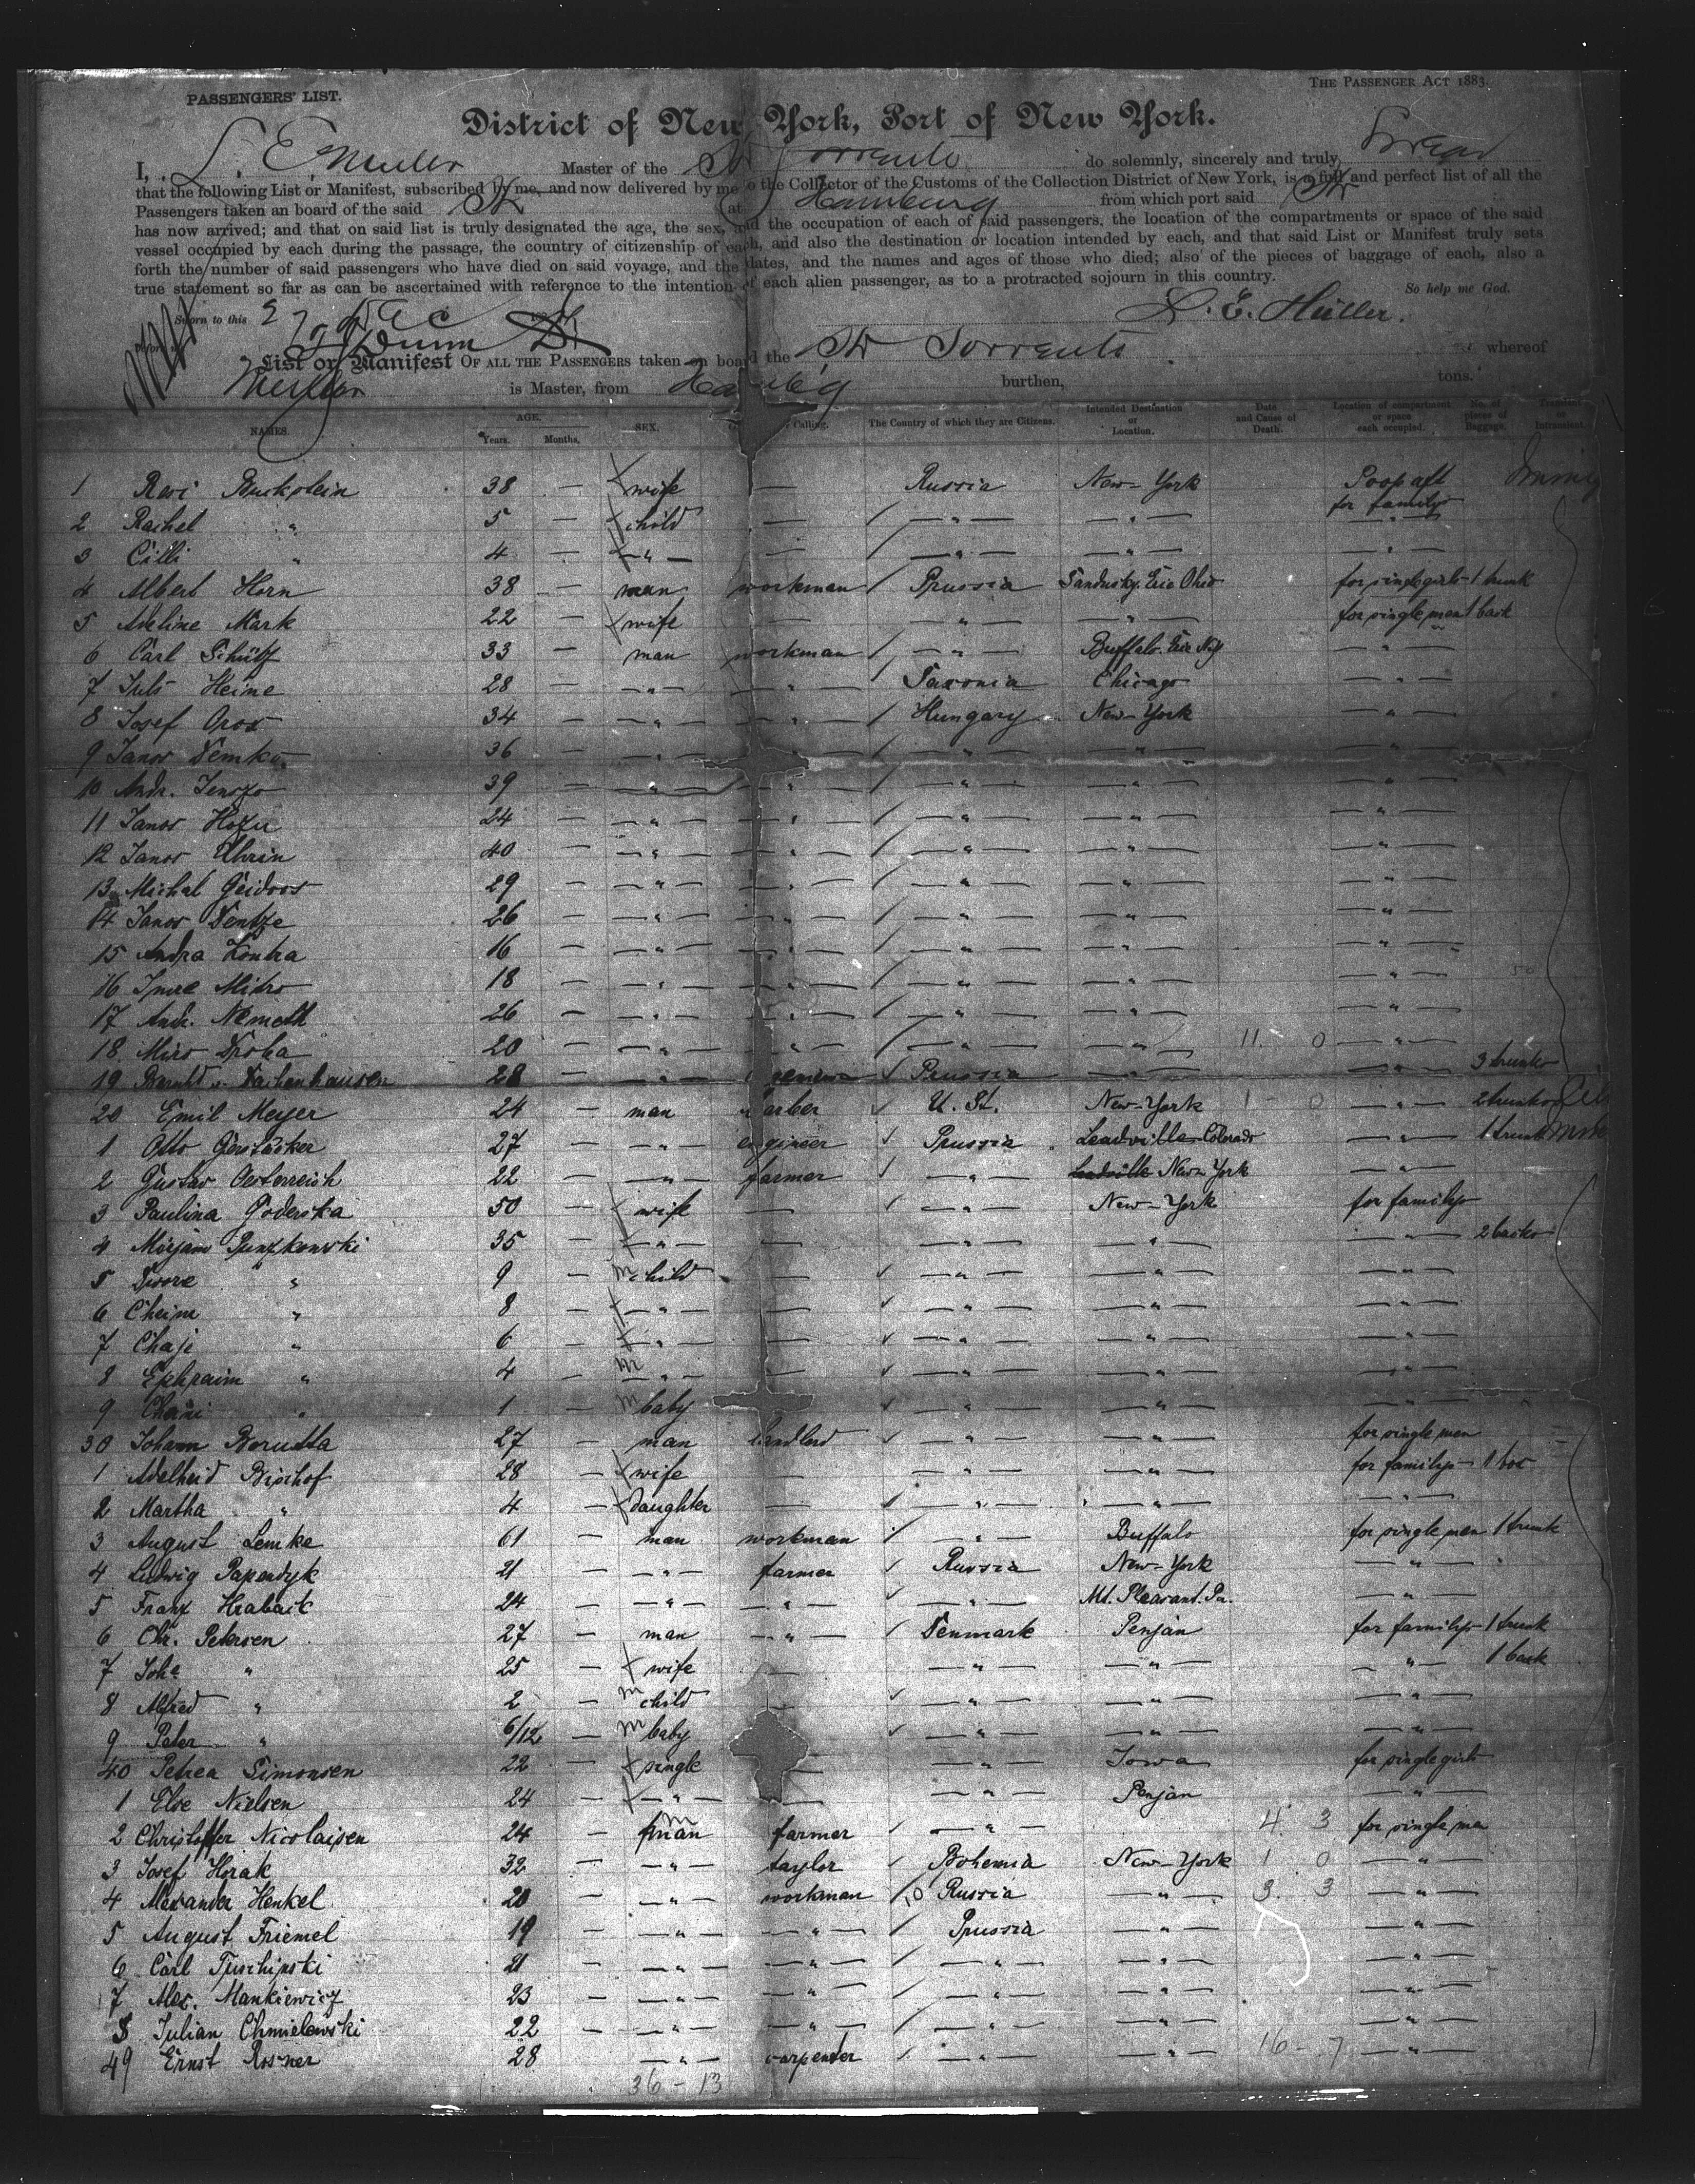 THE PASSENGER ACT 1883.
PASSENGERS' LIST.
District of New York, Port of New York.
I, L. E. Müller Master of the Str Sorrento do solemnly, sincerely and truly Swear
that the following List or Manifest, subscribed by me, and now delivered by me to the Collector of the Customs of the Collection District of New York, is a full and perfect list of all the
Passengers taken an board of the said Str at Hamburg from which port said Str
has now arrived; and that on said list is truly designated the age, the sex, and the occupation of each of said passengers, the location of the compartments or space of the said
vessel occupied by each during the passage, the country of citizenship of each, and also the destination or location intended by each, and that said List or Manifest truly sets
forth the number of said passengers who have died on said voyage, and the dates, and the names and ages of those who died; also of the pieces of baggage of each, also a
true statement so far as can be ascertained with reference to the intention of each alien passenger, as to a protracted sojourn in this country.
So help me God.
Sworn to this 27 Dec
L. E. Müller.
List or Manifest OF ALL THE PASSENGERS taken on board the Str Sorrento whereof
Muller is Master, from Hamb'g burthen, tons.
NAMES. AGE. Years. Months. SEX. Calling. The Country of which they are Citizens. Intended Destination or Location. Date and Cause of Death. Location of compartment or space each occupied. No. of pieces of Baggage.
1 Resi Buckstein 38 — wife — Russia New-York Poop aft for family
2 Rachel " 5 — child — — " — — " — — " —
3 Cilli " 4 — — " — — — " — — " — — " —
4 Albert Horn 38 — man workman / Prussia Sandusky. Erie Ohio for single girls 1 trunk
5 Adeline Mark 22 — wife — — " — — " — for single men 1 back
6 Carl Schütz 33 — man workman / — " — Buffalo. Erie N.Y — " —
7 Juls Heine 28 — — " — — " — Saxonia Chicago — " —
8 Josef Oros 34 — — " — — " — / Hungary New-York — " —
9 Janos Demko 36 — — " — — " — / — " — — " — — " —
10 Andr. Jenszo 39 — — " — — " — / — " — — " — — " —
11 Janos Hozu 24 — — " — — " — / — " — — " — — " —
12 Janos Uhrin 40 — — " — — " — / — " — — " — — " —
13 Michal Geidoos 29 — — " — — " — / — " — — " — — " —
14 Janos Dentze 26 — — " — — " — / — " — — " — — " —
15 Andra Kontra 16 — — " — — " — / — " — — " — — " —
16 Imre Mitro 18 — — " — — " — / — " — — " — — " —
17 Andr. Nemeth 26 — — " — — " — / — " — — " — — " —
18 Miro Droba 20 — — " — — " — / — " — — " — 11. 0 — " —
19 28 — — " — ✓ Prussia — " — — " — 3 trunks
20 Emil Meyer 24 — man barber ✓ U. St. New-York 1 - 0 — " — 2 trunks
1 Otto Gerstäcker 27 — — " — engineer ✓ Prussia Leadville Colorado — " — 1 trunk
2 Gustav Oesterreich 22 — — " — farmer ✓ — " — Leadville New-York — " —
3 Paulina Goderska 50 — wife — ✓ — " — New-York for family
4 Mirjam Punzkowski 35 — — " — — — " — — " — — " — 2 backs
5 Dwore " 9 — m child — ✓ — " — — " — — " —
6 Cheim " 8 — — " — — ✓ — " — — " — — " —
7 Chaje " 6 — — " — — ✓ — " — — " — — " —
8 Ephraim " 4 — m — " — — ✓ — " — — " — — " —
9 " 1 — m baby — ✓ — " — — " — — " —
30 Johann Berudta 27 — man landlord ✓ — " — — " — for single men
1 Adelheid Bischof 28 — wife — — " — — " — for family 1 box
2 Martha " 4 — daughter — ✓ — " — — " — — " —
3 August Lemke 61 — man workman / — " — Buffalo for single men 1 trunk
4 Ludwig Papendyk 21 — — " — farmer ✓ Russia New-York — " —
5 Franz Hrabaik 24 — — " — — " — ✓ — " — Mt. Pleasant. Pa. — " —
6 Chr. Petersen 27 — man — " — / Denmark Penjan for family 1 trunk
7 Johe " 25 — wife — — " — — " — — " — 1 back
8 Alfred " 2 — m child — ✓ — " — — " — — " —
9 Peter " 6/12 — m baby — ✓ — " — — " — — " —
40 Petrea Simonsen 22 — single — — " — Iowa for single girls
1 Else Nielsen 24 — — " — — — " — Penjan — " —
2 Christoffer Nicolaisen 24 — man farmer ✓ — " — 4. 3 for single men
3 Josef Horak 32 — — " — taylor ✓ Bohemia New-York 1 0 — " —
4 Alexander Henkel 20 — — " — workman / Russia — " — 3. 3 — " —
5 August Friemel 19 — — " — — " — / Prussia — " — — " —
6 Carl Tuschinski 21 — — " — — " — / — " — — " — — " —
7 Alex. Mankiewicz 23 — — " — — " — / — " — — " — — " —
8 Julian Chmielewski 22 — — " — — " — / — " — — " — — " —
49 Ernst Rosner 28 — " — carpenter / — " — — " — 16 - 7 — " —
36 - 13